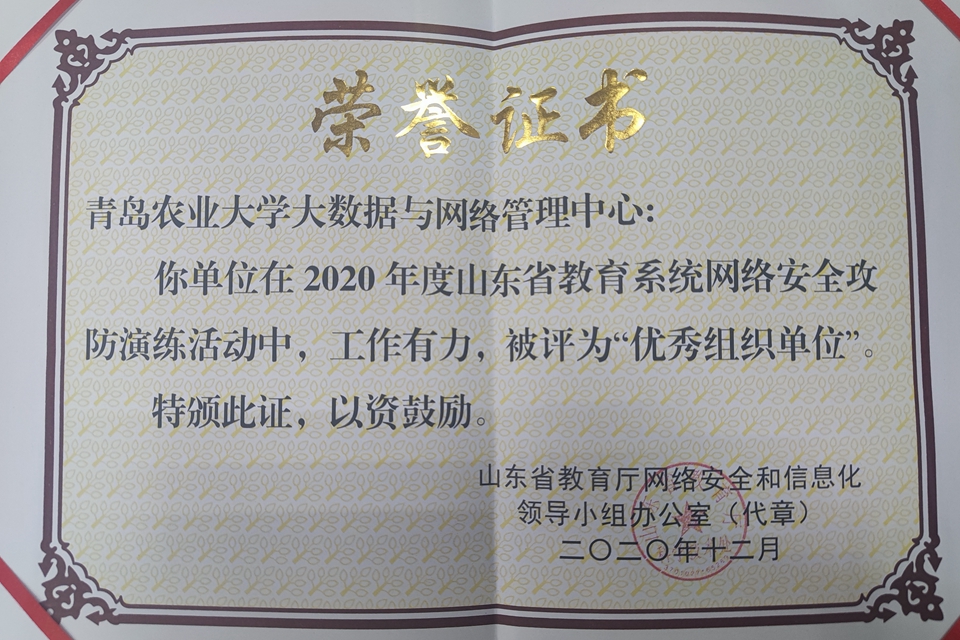 荣誉证书
青岛农业大学大数据与网络管理中心:
你单位在 2020 年度山东省教育系统网络安全攻
防演练活动中，工作有力，被评为“优秀组织单位”。
特颁此证，以资鼓励。
山东省教育厅网络安全和信息化
领导小组办公室（代章）
二〇二〇年十二月